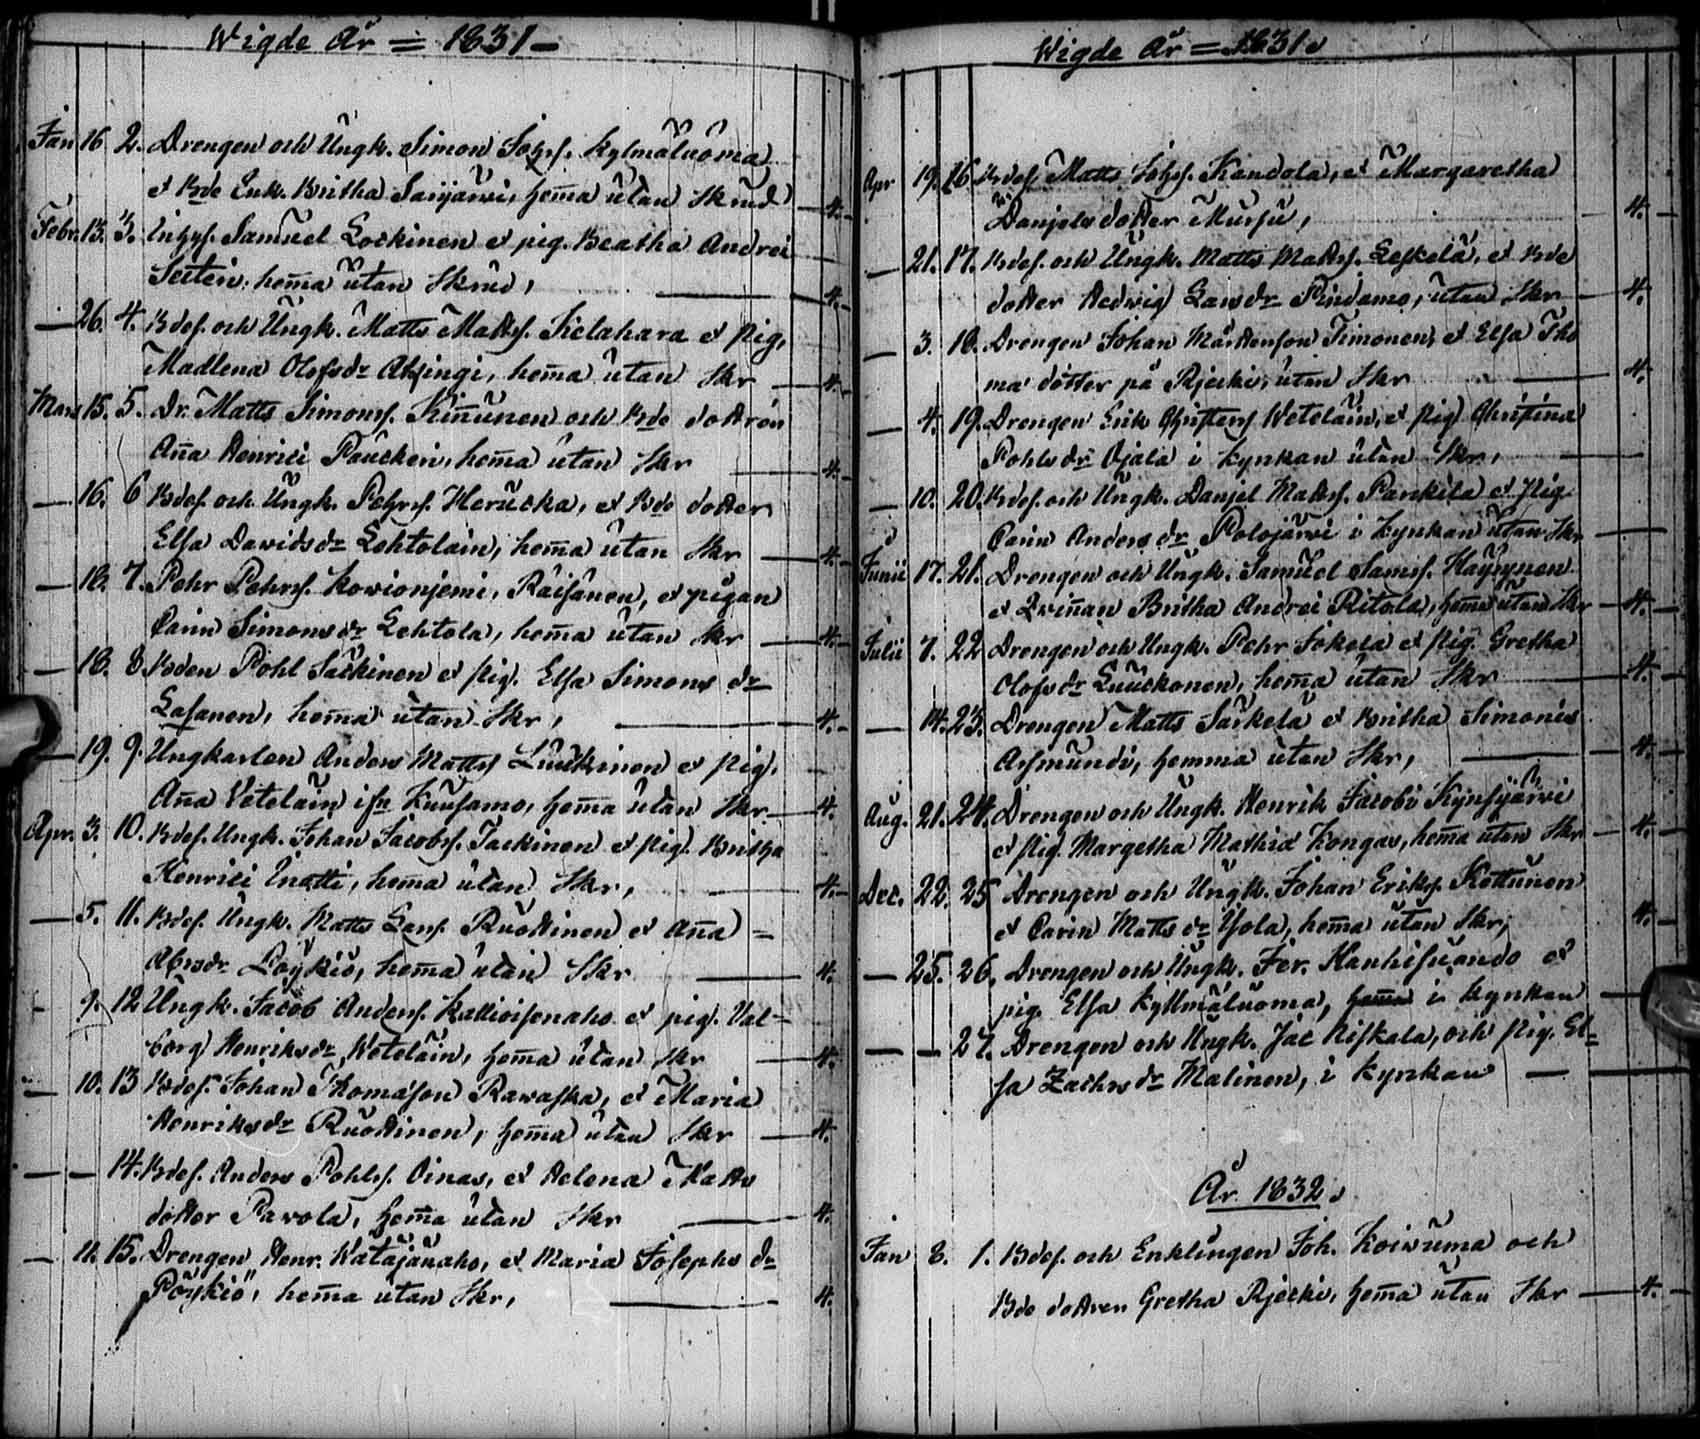 Wigde År = 1831 -
Jan 16 2. Drengen och Ungk. Simon Johss. Kylmäluoma
et Bde Enk. Britha Sarjärvi, hem̄a utan Skrud 4.
Febr. 13. 3. Samuel Lockinen et pig. Beatha Andrei
Seitein. hem̄a utan Skrud, 4.
— 26. 4. Bdes. och Ungk. Matts Mattss. Kielahara et pig.
Madlena Olofs dr Alajingi, hem̄a utan Skr 4.
Mars 15. 5. Dr. Matts Simonss. Kin̄unen och Bde dottren
An̄a Henrici Paucken, hem̄a utan Skr 4.
— 16. 6 Bdes. och Ungk. Pehrss. Herucka, et Bde dotter
Elsa Davids dr Lehtolain, hem̄a utan Skr 4.
— 18. 7. Pehr Pehrss. Kowioniemi, Räisänen, et pigan
Carin Simons dr Lehtola, hem̄a utan Skr 4.
— 18. 8. Bden Pohl Särkinen et pig. Elsa Simons dr
Lasanen, hem̄a utan Skr, 4.
— 19. 9. Ungkarlen Anders Mattss Luuckinen et pig.
An̄a Vetelain ifr Kuusamo, hem̄a utan Skr 4.
Apr. 3. 10. Bdes. Ungk. Johan Jacobss. Tackinen et pig. Britha
Henrici Inatti, hem̄a utan Skr, 4.
— 5. 11. Bdes. Ungk. Matts Larss. Ruottinen et An̄a =
Abrs dr Löykiö, hem̄a utan Skr 4.
- 9. 12 Ungk. Jacob Anderss. Kallioisenaho et pig. Val=
borg Henriks dr Wetelain, hem̄a utan Skr 4.
— 10. 13 Bdes. Johan Thomasson Rawaska, et Maria
Henriks dr Ruottinen, hem̄a utan Skr 4.
— — 14. Bdes. Anders Pohlss. Oinas, et Helena Matts
dotter Pavola, hem̄a utan Skr 4.
— 11. 15. Drengen Henr. Watajänaho, et Maria Josephs dr
Pöykiö, hem̄a utan Skr, 4.
Wigde År = 1831.
Apr 19. 16. Bdes. Matts Johss. Kandola, et Margaretha
Danjels dotter Mursu, 4.
— 21. 17. Bdes. och Ungk. Matts Mattss. Leskelä, et Bde
dotter Hedwig Lars dr Pindamo, utan Skr 4.
— 3. 18. Drengen Johan Mårtensson Timonen, et Elsa Tho
mæ dotter på Rjecki, utan Skr 4.
— 4. 19. Drengen Erik Christerss Wetelain, et pig. Christina
Pohls dr Ojala i Kynkan utan Skr,
— 10. 20. Bdes. och Ungk. Danjel Mattss. Pankila et Pig
Carin Anders dr Polojärvi i Kynkan utan Skr
Junii 17. 21. Drengen och Ungk. Samuel Samss. Häyrynen
et Qwin̄an Britha Andrei Ritola, hem̄a utan Skr 4.
Julii 7. 22 Drengen och Ungk. Pehr Jokela et pig. Gretha
Olofs dr Luuckonen, hem̄a utan Skr 4.
— 14. 23. Drengen Matts Särkelä et Britha Simonis
Asmundi, hemma utan Skr, 4.
Aug. 21. 24. Drengen och Ungk. Henrik Jacobi Kynsijärvi
et pig. Margetha Mathiæ Kongas, hem̄a utan Skr 4.
Dec. 22. 25 Drengen och Ungk. Johan Erikss. Kottunen
et Carin Matts dr Yola, hem̄a utan Skr, 4.
— 25. 26. Drengen och Ungk. Jer. Kauhisuando et
pig. Elsa Kyllmäluoma, hem̄a i Kynkan
— — 27. Drengen och Ungk. Jac Niskala, och pig. El=
sa Zachrs dr Malinen, i Kynkan
År 1832.
Jan 8. 1. Bdes. och Enklingen Joh. Koiwuma och
Bde dottren Gretha Rjecki, hem̄a utan Skr 4.